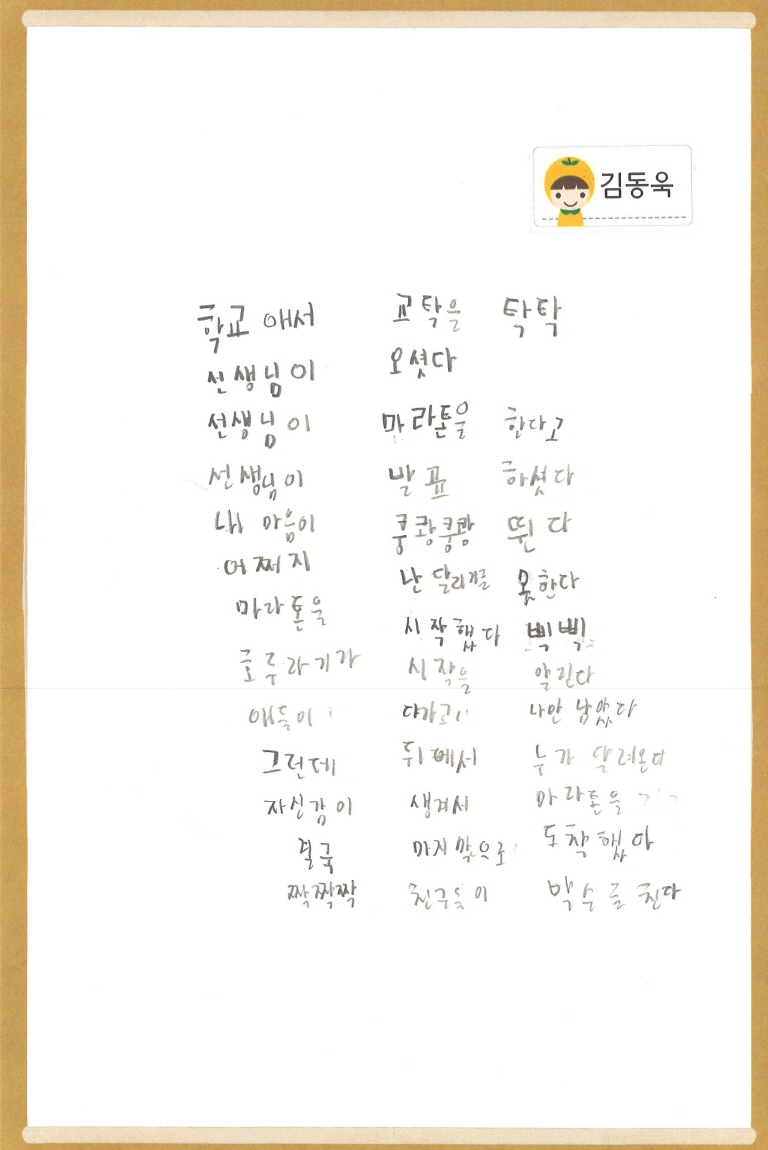 김동욱
학교 애서 교탁을 탁탁
선생님이 오셨다
선생님이 마라톤을 한다고
선생님이 발표 하셨다
내 마음이 쿵쾅쿵쾅 뛴다
어쩌지 난 달리기를 못한다
마라톤을 시작했다 삑삑
호루라기가 시작을 알린다
애들이 다가고 나만 남았다
그런데 뒤에서 누가 달려온다
자신감이 생겨서 마라톤을
결국 마지막으로 도착했다
짝짝짝 친구들이 박수를 친다